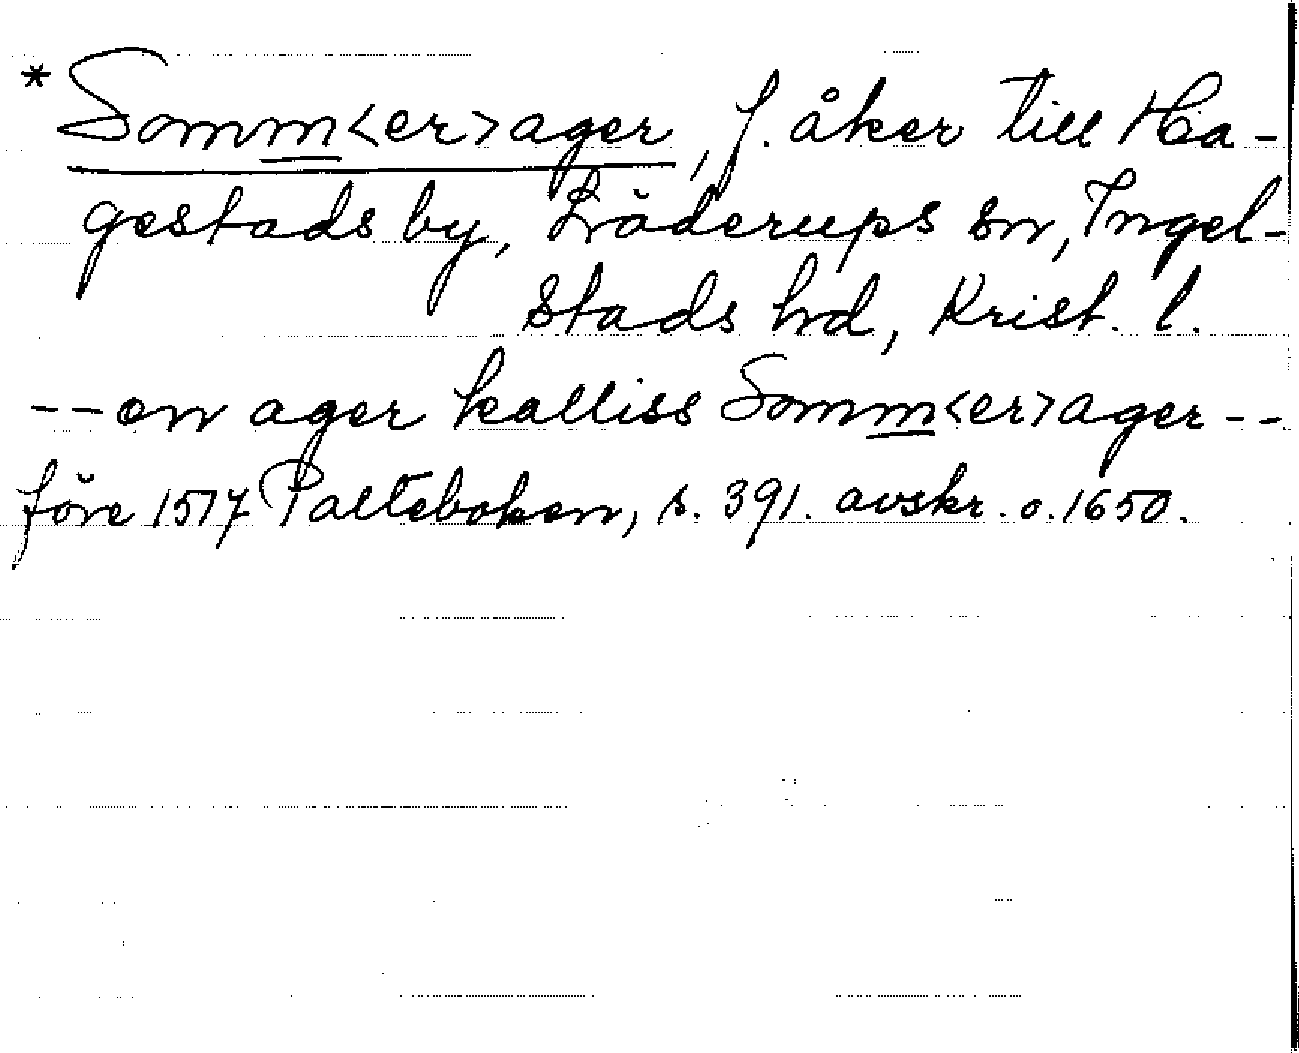 *Somm<er>ager, f. åker till Ha-
gestads by, Löderups sn, Ingel-
stads hd, Krist. l.
-- en ager kalliss Somm<er>ager --
före 1517 Palteboken, s. 391. avskr. o. 1650.